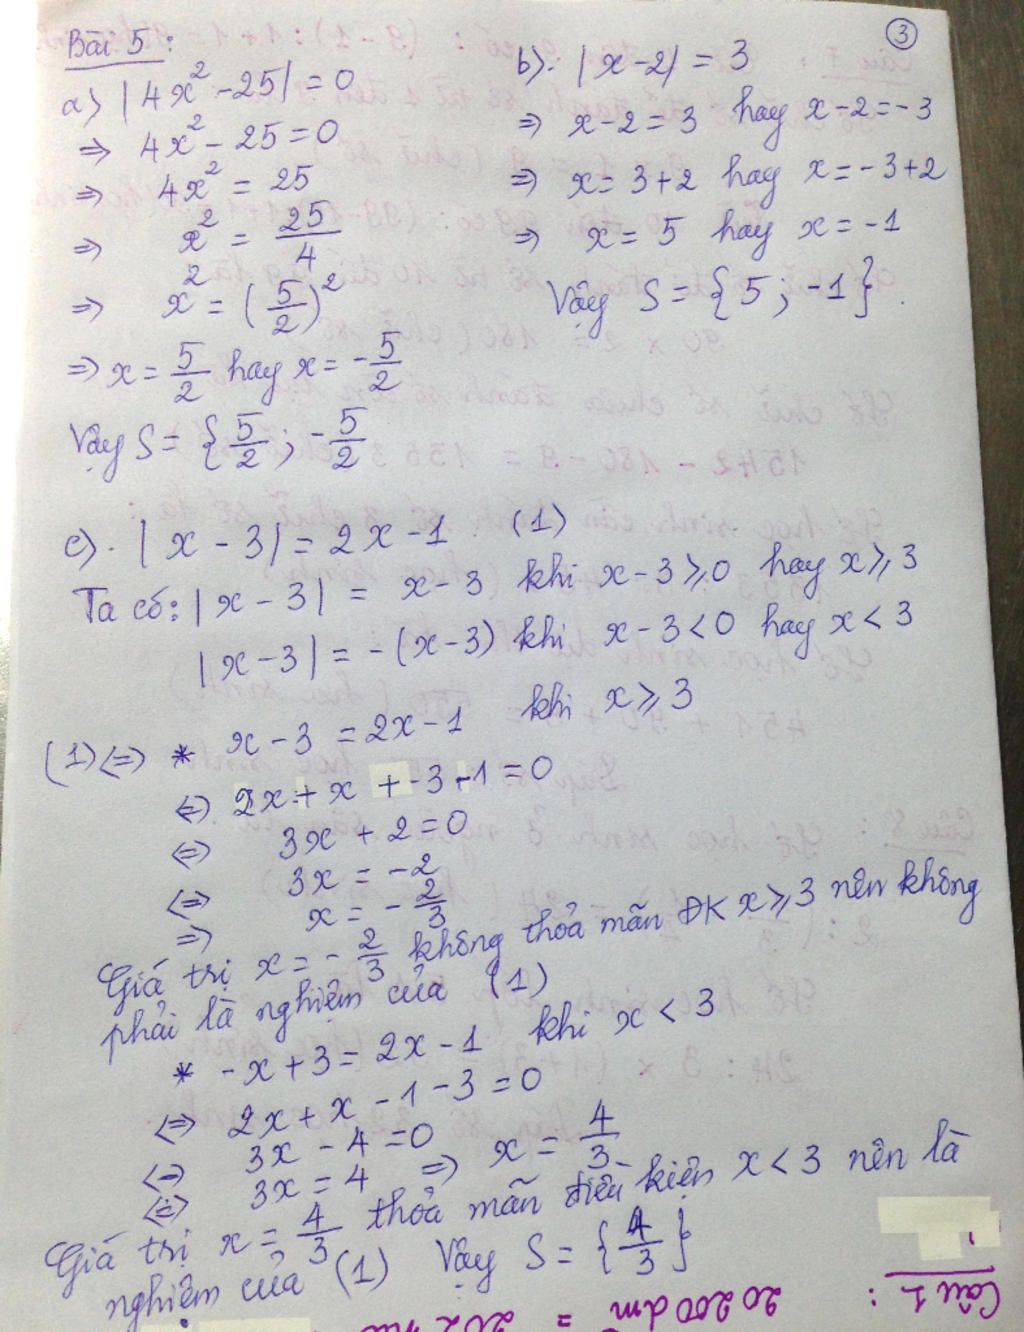 3
Bài 5:
a) |4x² - 25| = 0
=> 4x² - 25 = 0
=> 4x² = 25
=> x² = 25/4
=> x² = (5/2)²
=> x = 5/2 hay x = -5/2
Vậy S = {5/2; -5/2
b). |x-2| = 3
=> x-2 = 3 hay x-2 = -3
=> x = 3+2 hay x = -3+2
=> x = 5 hay x = -1
Vậy S = {5; -1}.
c). |x-3| = 2x-1 (1)
Ta có: |x-3| = x-3 khi x-3 ⩾ 0 hay x ⩾ 3
|x-3| = -(x-3) khi x-3 < 0 hay x < 3
(1) <=> * x-3 = 2x-1 khi x ⩾ 3
<=> 2x + x + -3 -1 = 0
<=> 3x + 2 = 0
<=> 3x = -2
=> x = -2/3
Giá trị x = -2/3 không thỏa mãn ĐK x ⩾ 3 nên không
phải là nghiệm của (1)
* -x+3 = 2x-1 khi x < 3
<=> 2x + x - 1 - 3 = 0
<=> 3x - 4 = 0
<=> 3x = 4 => x = 4/3
Giá trị x = 4/3 thỏa mãn điều kiện x < 3 nên là
nghiệm của (1) Vậy S = {4/3}
Câu 1:
20200dm =